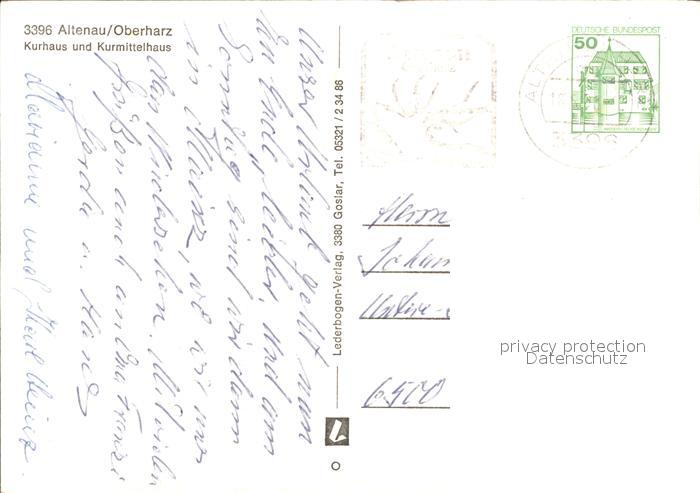 3396 Altenau/Oberharz
Kurhaus und Kurmittelhaus
Unser Urlaub geht nun
zu Ende, leider, und am
Sonntag sind wir dann
in Mainz, wo wir uns
Wiedersehen. Mit vielen
Grüßen auch an
Gerda u. Hans
Marianne und Karl Heinz.
Lederbogen-Verlag, 3380 Goslar, Tel. 05321 / 2 34 86
DEUTSCHE BUNDESPOST
50
ALT
3396
Herrn
Johan
6500
privacy protection
Datenschutz